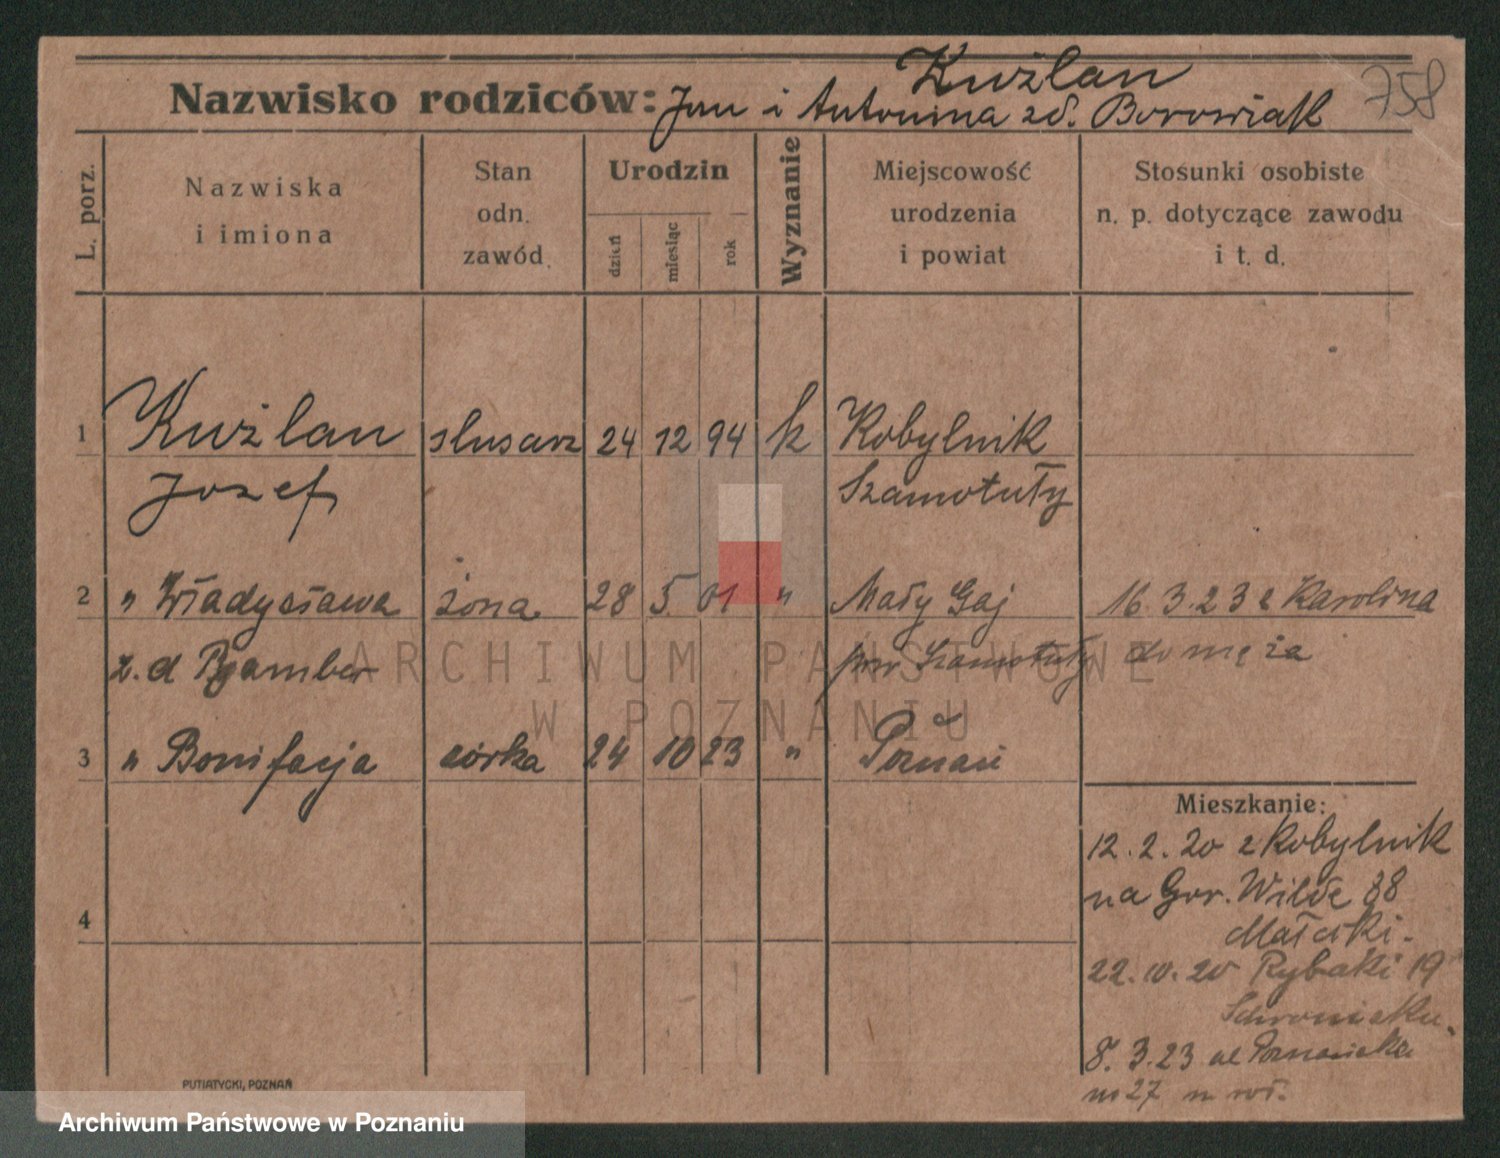 Kuźlan
758
Nazwisko rodziców: Jan i Antonina zd. Borowiak
L. porz.
Nazwiska
i imiona
Stan
odn.
zawód.
Urodzin
dzień
miesiąc
rok
Wyznanie
Miejscowość
urodzenia
i powiat
Stosunki osobiste
n. p. dotyczące zawodu
i t. d.
1 Kuźlan slusarz 24 12 94 k Kobylnik
Józef Szamotuły
2 " Władysława żona 28 5. 01 " Mały Gaj 16 3.23 z Karolina
z. d pow Szamotuły do męża
ARCHIWUM PAŃSTWOWE
W POZNANIU
3 " Bonifacja córka 24 10 23 " Poznań
Mieszkanie:
12.2.20 z Kobylnik
na Gór. Wildę 88
4
Małecki.
22.10.20 Rybaki 19
8.3.23 ul Poznańska
27
PUTIATYCKI, POZNAŃ
Archiwum Państwowe w Poznaniu